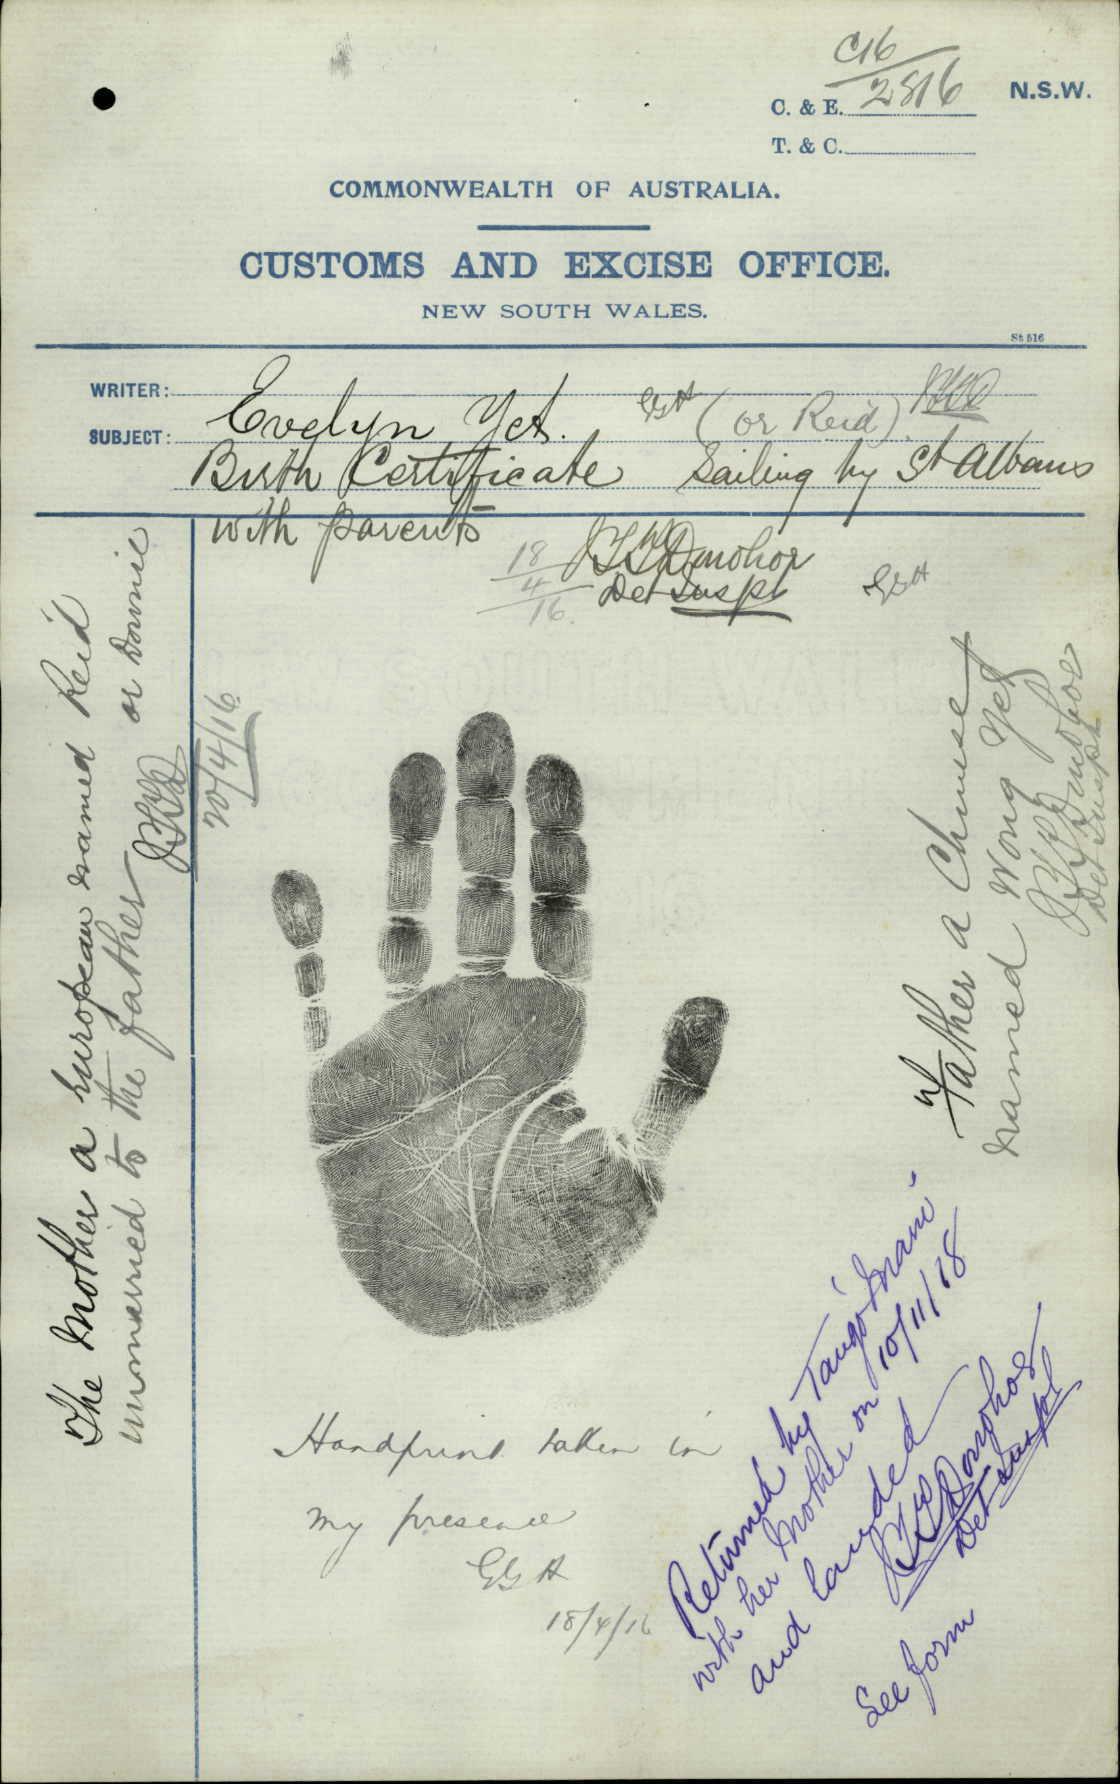 C16
2816
N.S.W.
C. & E.
T. & C.
COMMONWEALTH OF AUSTRALIA.
CUSTOMS AND EXCISE OFFICE.
NEW SOUTH WALES.
St 516
WRITER:
SUBJECT:
Evelyn Yet. (or Reid)
Birth Certificate Sailing by St Albans
with parents
18
4
16
Donohoe
Det Inspr
The Mother a European named Reid
or Downie
unmarried to the father
20/4/16
Father a Chinese
named Wong Yet
Donohoe
Det Inspr
Handprint taken in
my presence
GGH
18/4/16
Returned by "Tango Maru"
with her Mother on 10/11/18
and landed
Donohoe
Det Inspr
See form